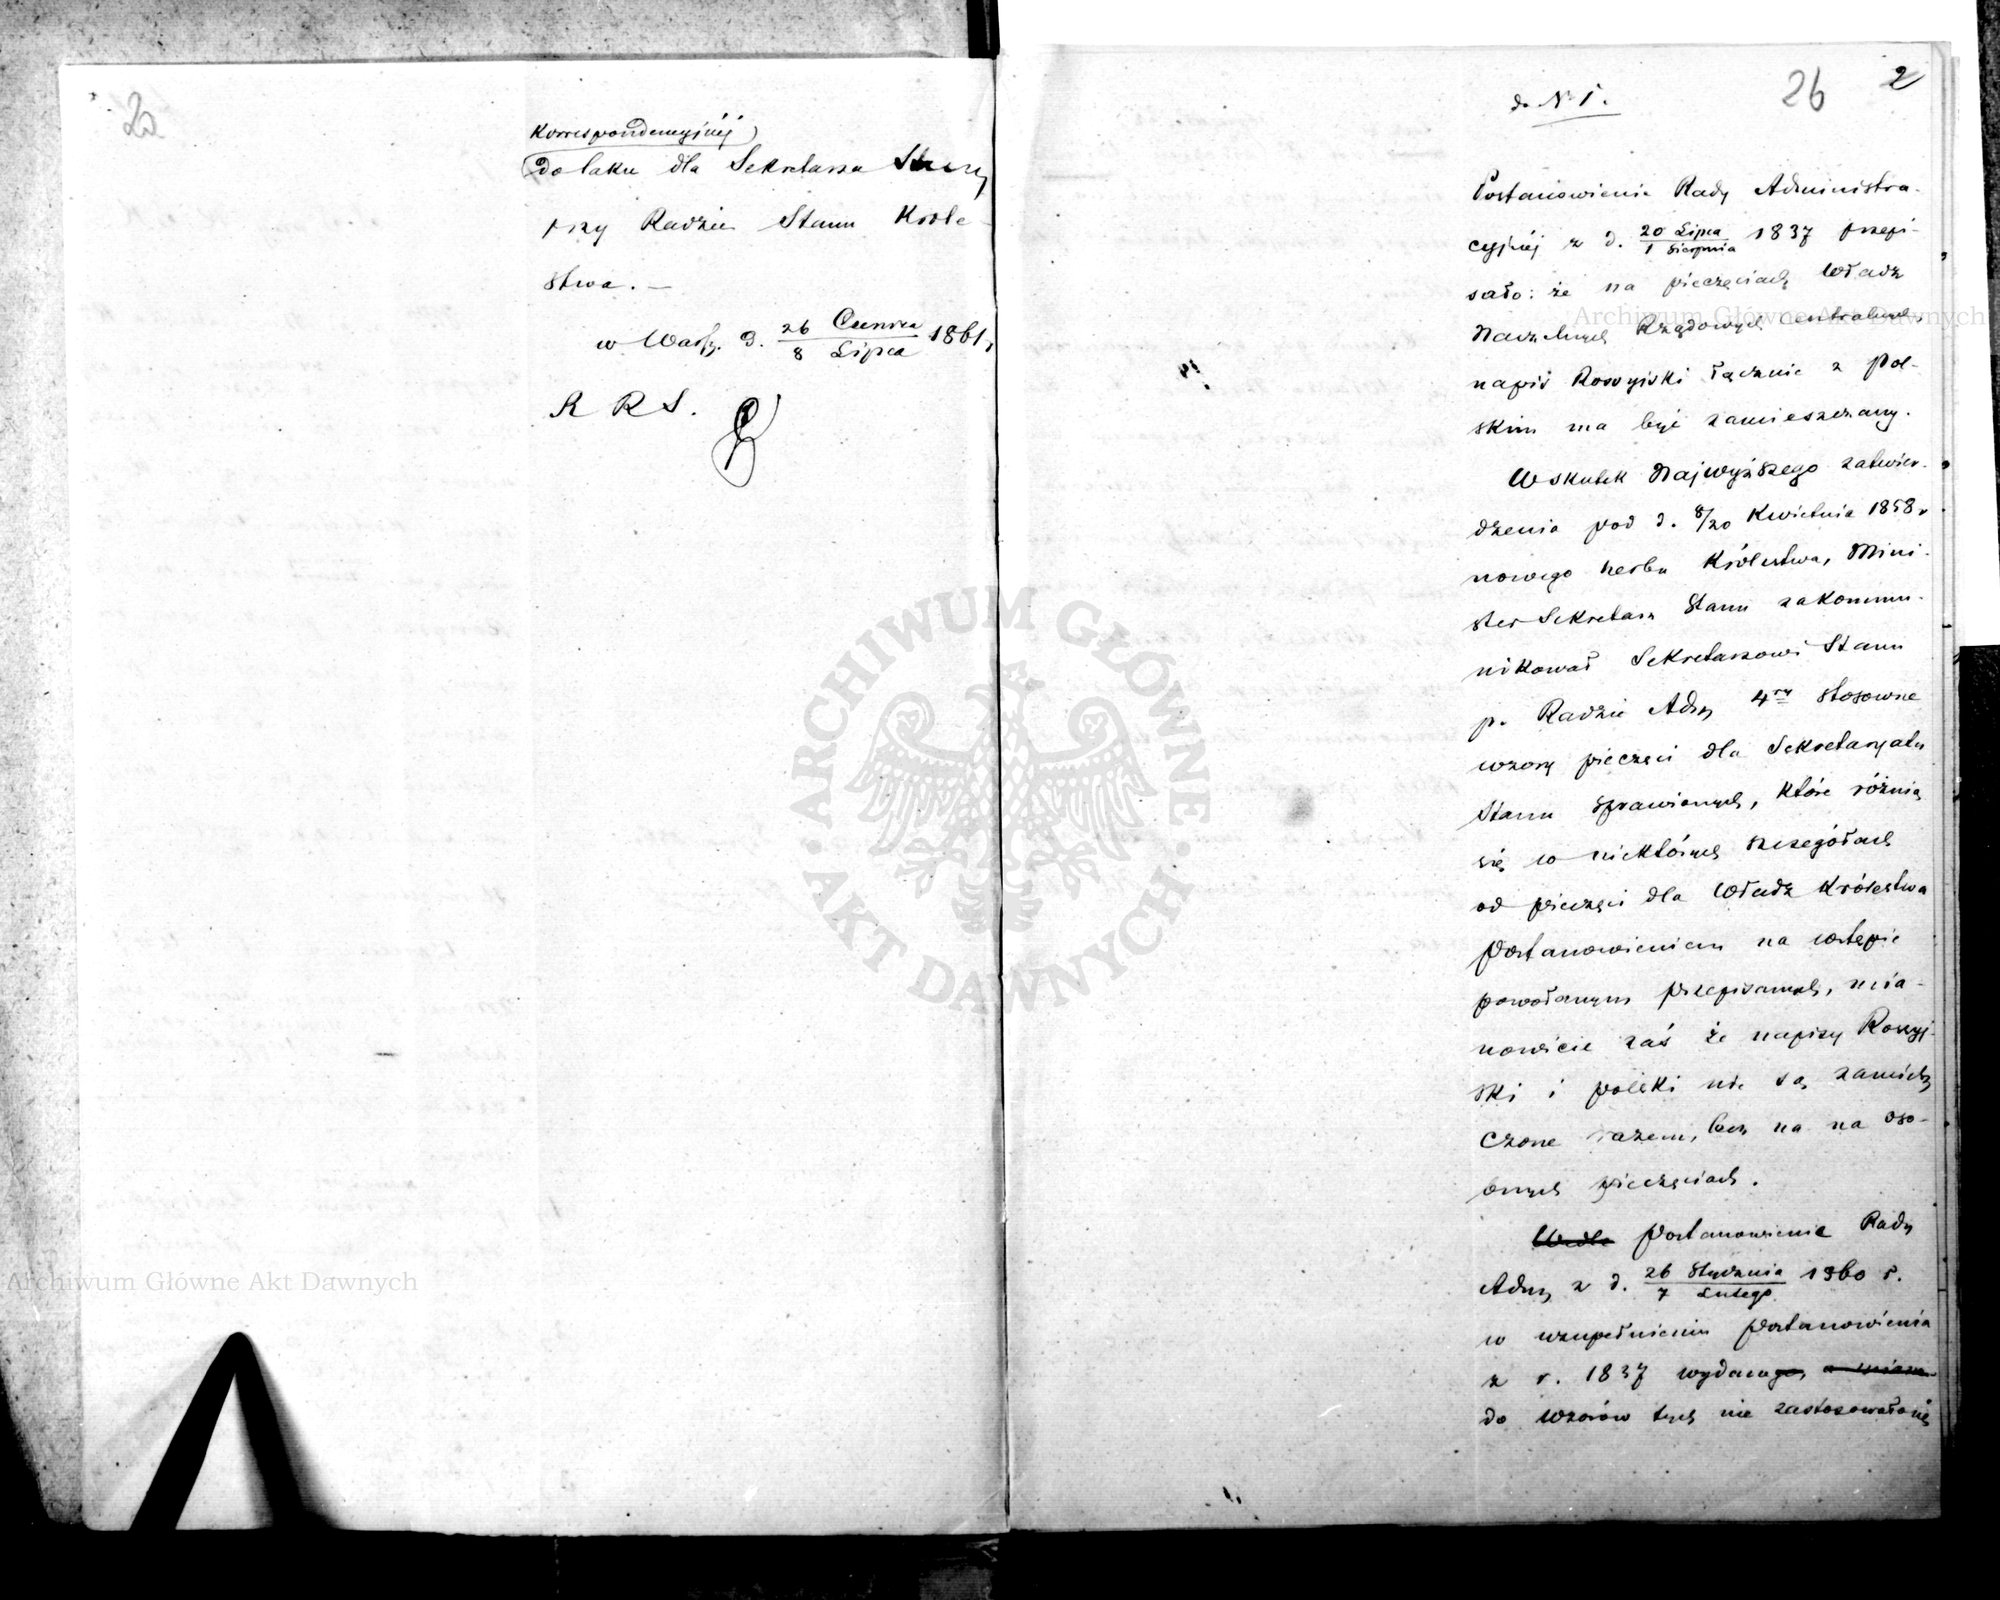 korrespondencyjnéj
do laku dla Sekretarza Stanu
przy Radzie Stanu Króle-
stwa. —
w Warsz. d. 26 Czerwca / 8 Lipca 1861 r.
R R S.
26 2
do N 1.
Postanowienie Rady Administra-
cyjnéj z d. 20 Lipca / 1 Sierpnia 1837 przepi-
sało: że na pieczęciach Władz
Naczelnych Rządowych centralnych,
napis Rossyjski łącznie z Pol-
skim ma być zamieszczany.
Wskutek Najwyższego zatwier-
dzenia pod d. 8/20 Kwietnia 1858 r.
nowego herbu Królestwa, Mini-
ster Sekretarz Stanu zakommu-
nikował Sekretarzowi Stanu
p. Radzie Adm 4ry stosowne
wzory pieczęci dla Sekretaryatu
Stanu sprawionych, które różnią
się w niektórych szczegółach
od pieczęci dla Władz Królestwa
Postanowieniem na wstępie
powołanym przepisanych, mia-
nowicie zaś że napisy Rossyj-
ski i polski nie są zamiesz
czone razem, lecz na na oso-
bnych pieczęciach.
Wedle Postanowienie Rady
Adm z d. 26 Stycznia / 7 Lutego 1860 r.
w uzupełnieniu Postanowienia
z r. 1837 wydanego
do wzorów tych nie zastosowało się
Archiwum Główne Akt Dawnych
Archiwum Główne Akt Dawnych
ARCHIWUM GŁÓWNE
AKT DAWNYCH